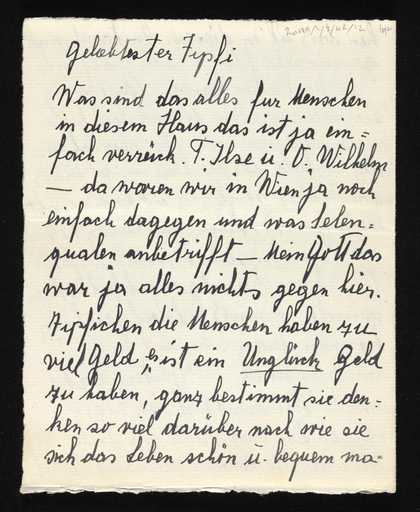 geliebtester Zipfi
Was sind das alles fur Menschen
in diesem Haus das ist ja ein=
fach verrückt. T. Ilse u. O. Wilhelm
— da waren wir in Wien ja noch
einfach dagegen und was Selen=
qualen anbetrifft — Mein Gott das
war ja alles nichts gegen hier.
Zipfichen die Menschen haben zu
viel Geld, es ist ein Unglück Geld
zu haben, ganz bestimmt sie den=
ken so viel darüber nach wie sie
sich das Leben schön u. bequem ma=